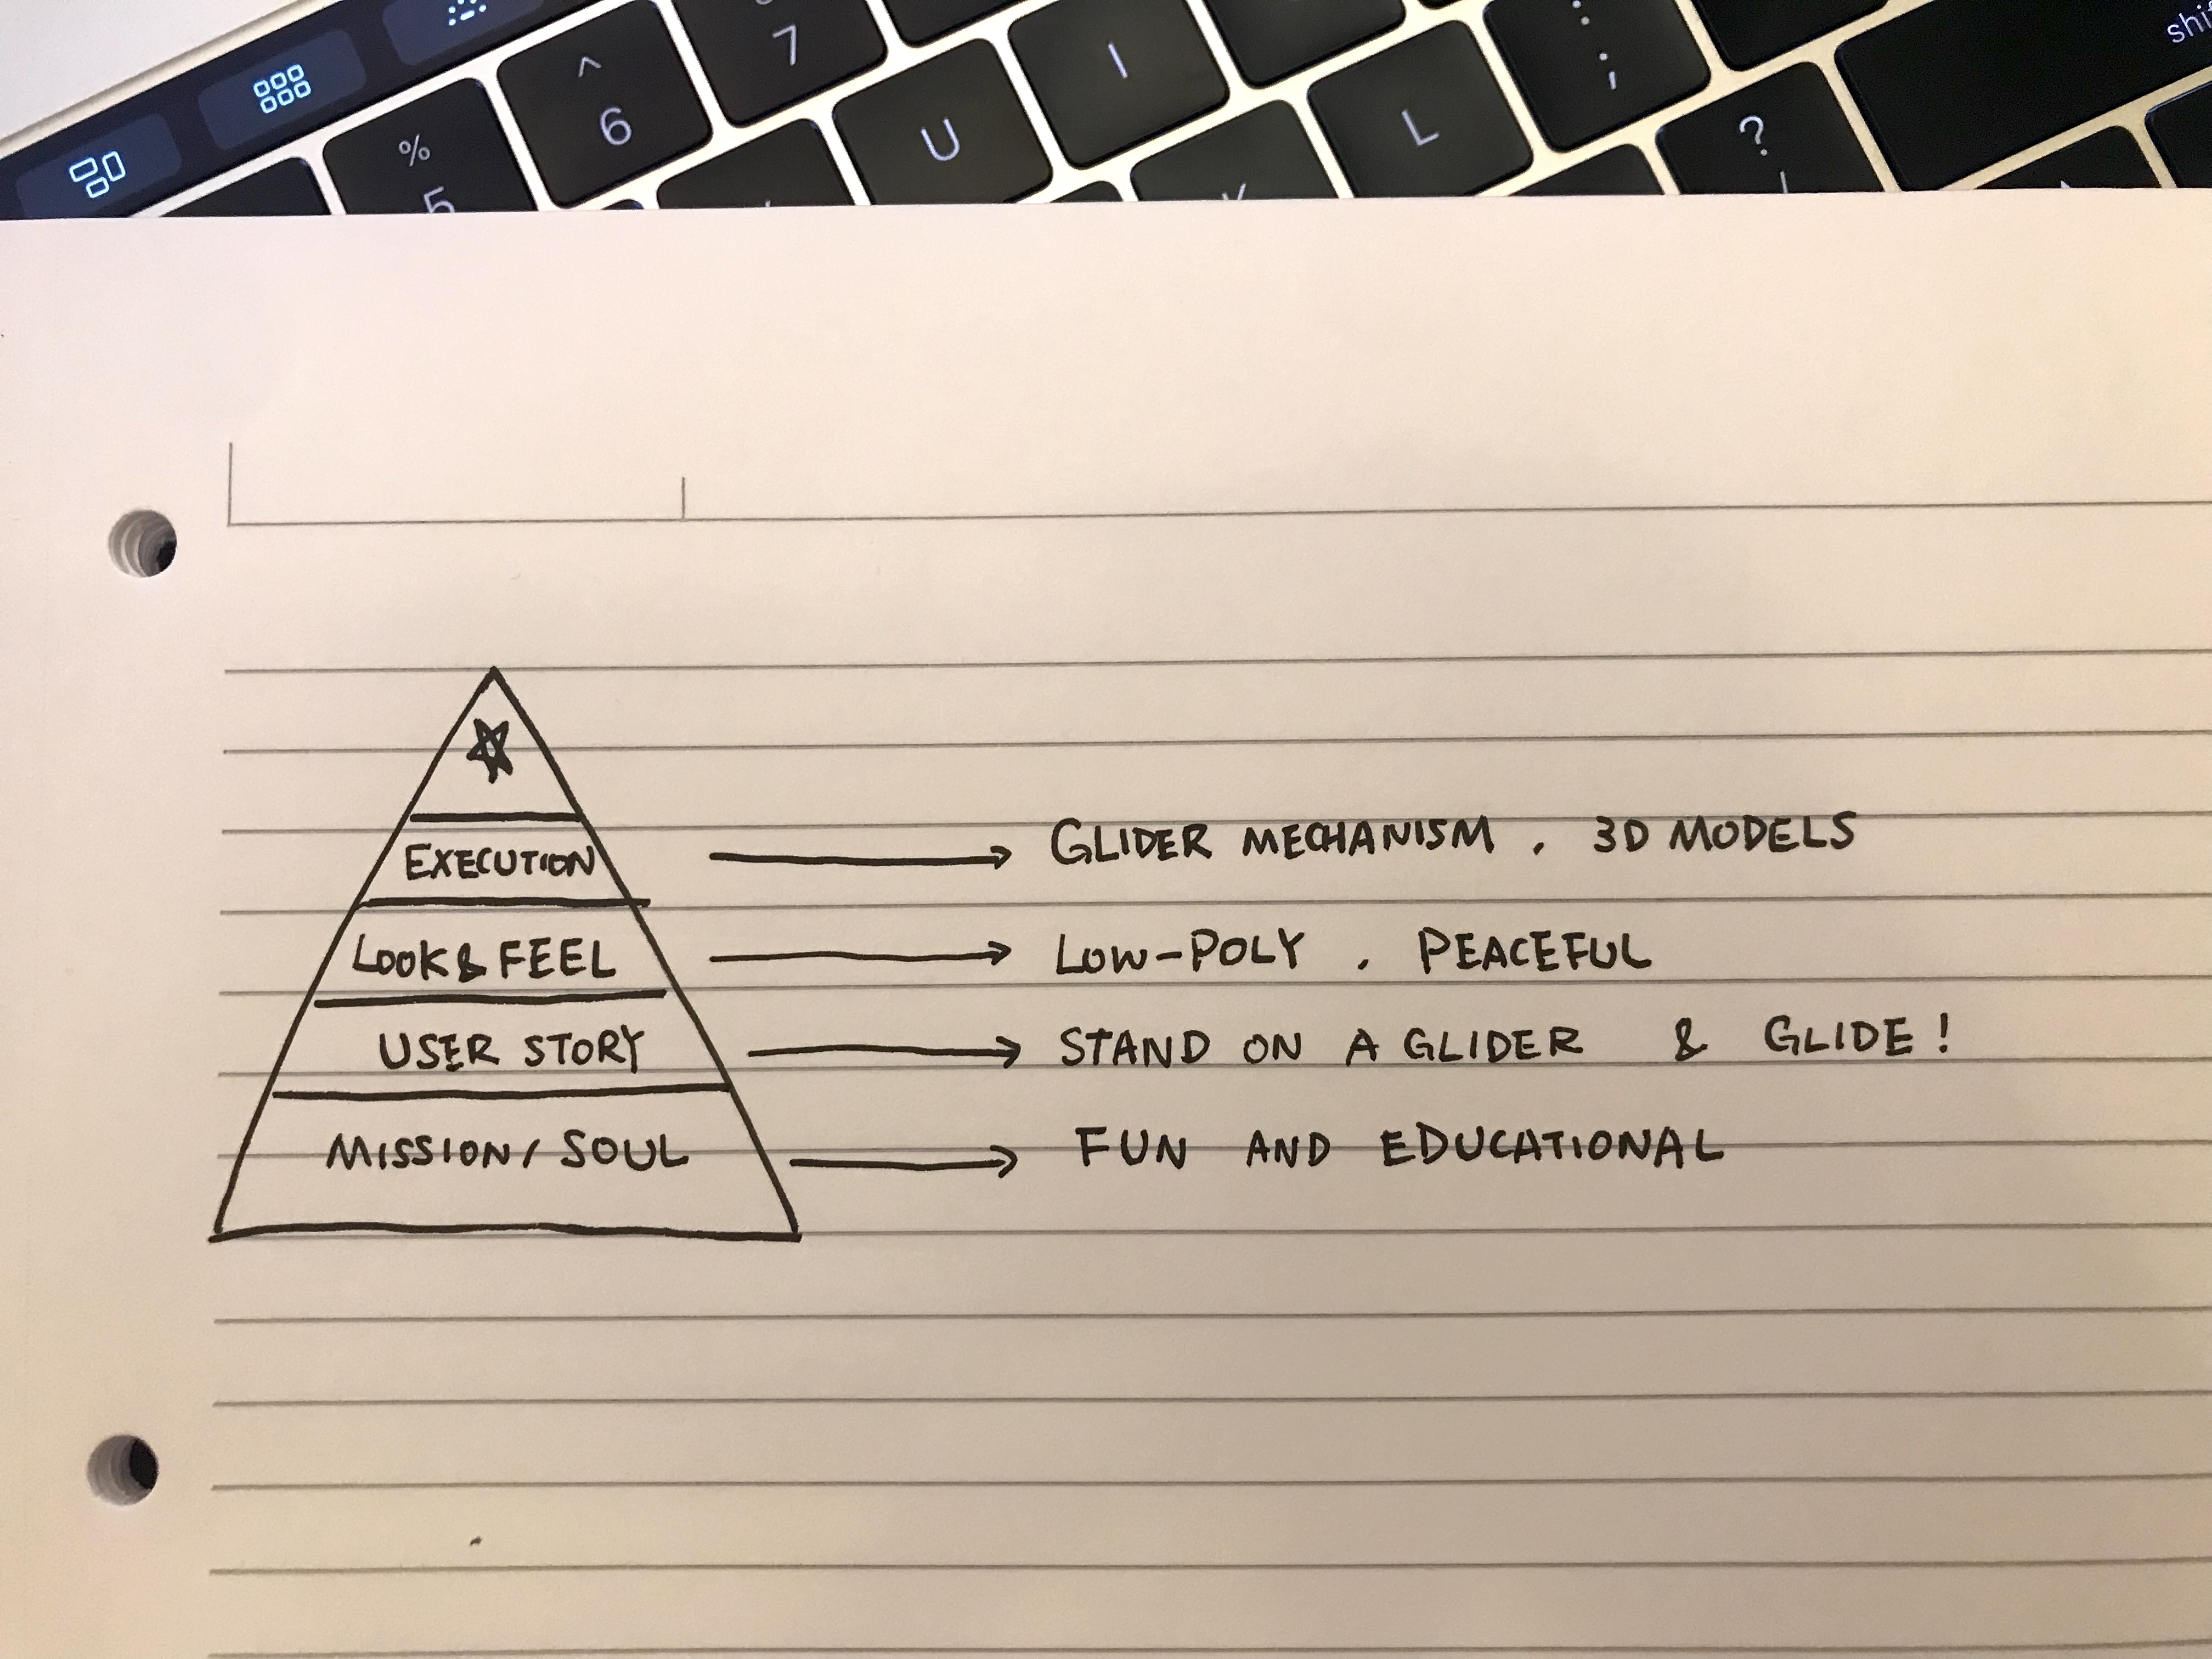 ^ 7 I : ; shi
% 6 U L ?
5 K
EXECUTION → GLIDER MECHANISM , 3D MODELS
LOOK & FEEL → LOW-POLY , PEACEFUL
USER STORY → STAND ON A GLIDER & GLIDE !
MISSION/ SOUL → FUN AND EDUCATIONAL